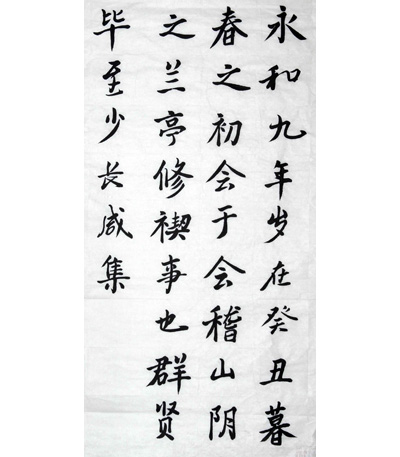 永和九年岁在癸丑暮
春之初会于会稽山阴
之兰亭修禊事也群贤
毕至少长咸集